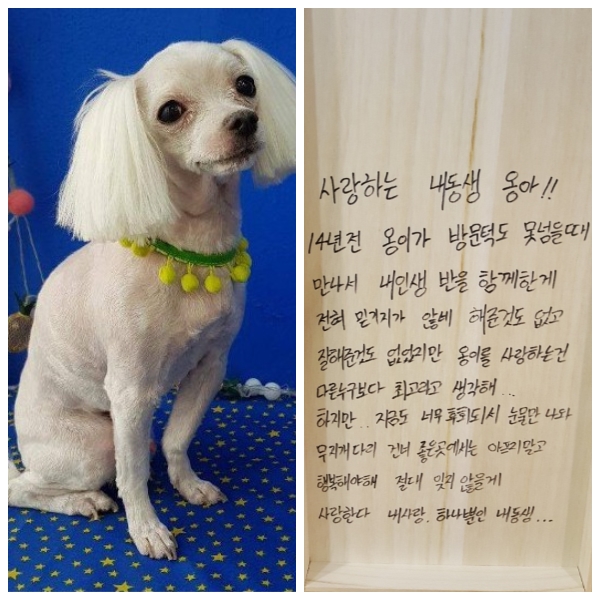 사랑하는 내동생 옹아!!
14년전 옹이가 방문턱도 못넘을때
만나서 내인생 반을 함께한게
전혀 믿기지가 않네 해준것도 없고
잘해준것도 없었지만 옹이를 사랑하는건
다른누구보다 최고라고 생각해...
하지만.. 지금도 너무 후회되서 눈물만 나와
무지개다리 건너 좋은곳에서는 아프지말고
행복해야해 절대 잊지 않을게
사랑한다 내사랑. 하나뿐인 내동생...